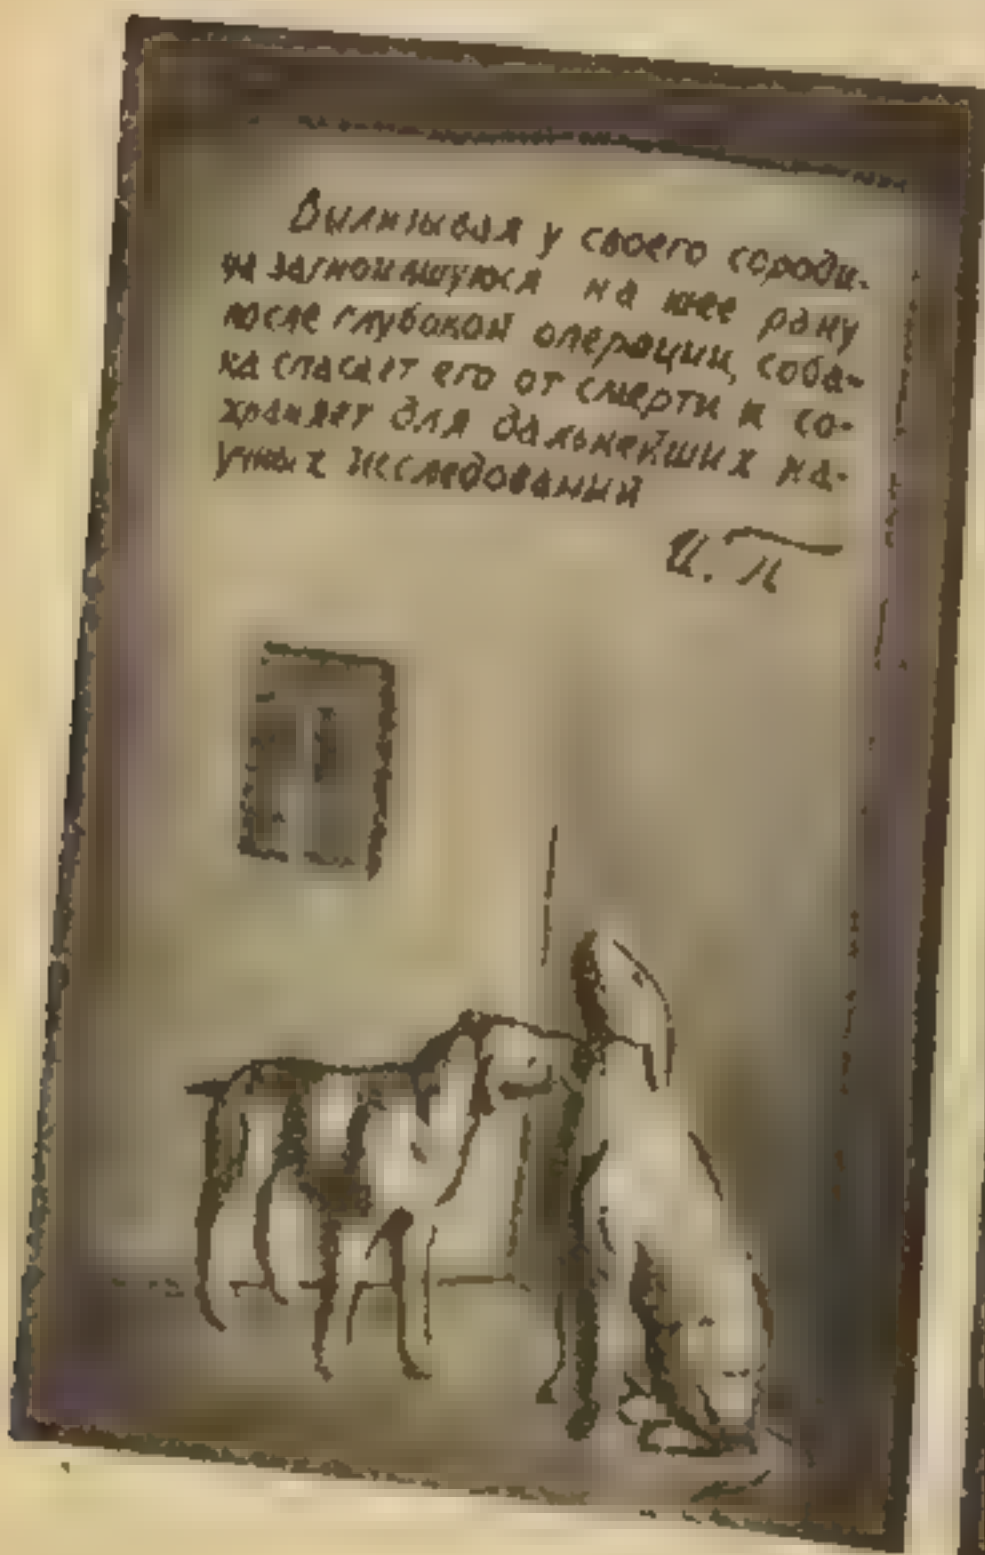 Вылизывая у своего сороди-
ча загноившуюся на шее рану
после глубокой операции, соба-
ка спасает его от смерти и со-
храняет для дальнейших на-
учных исследований
И. П